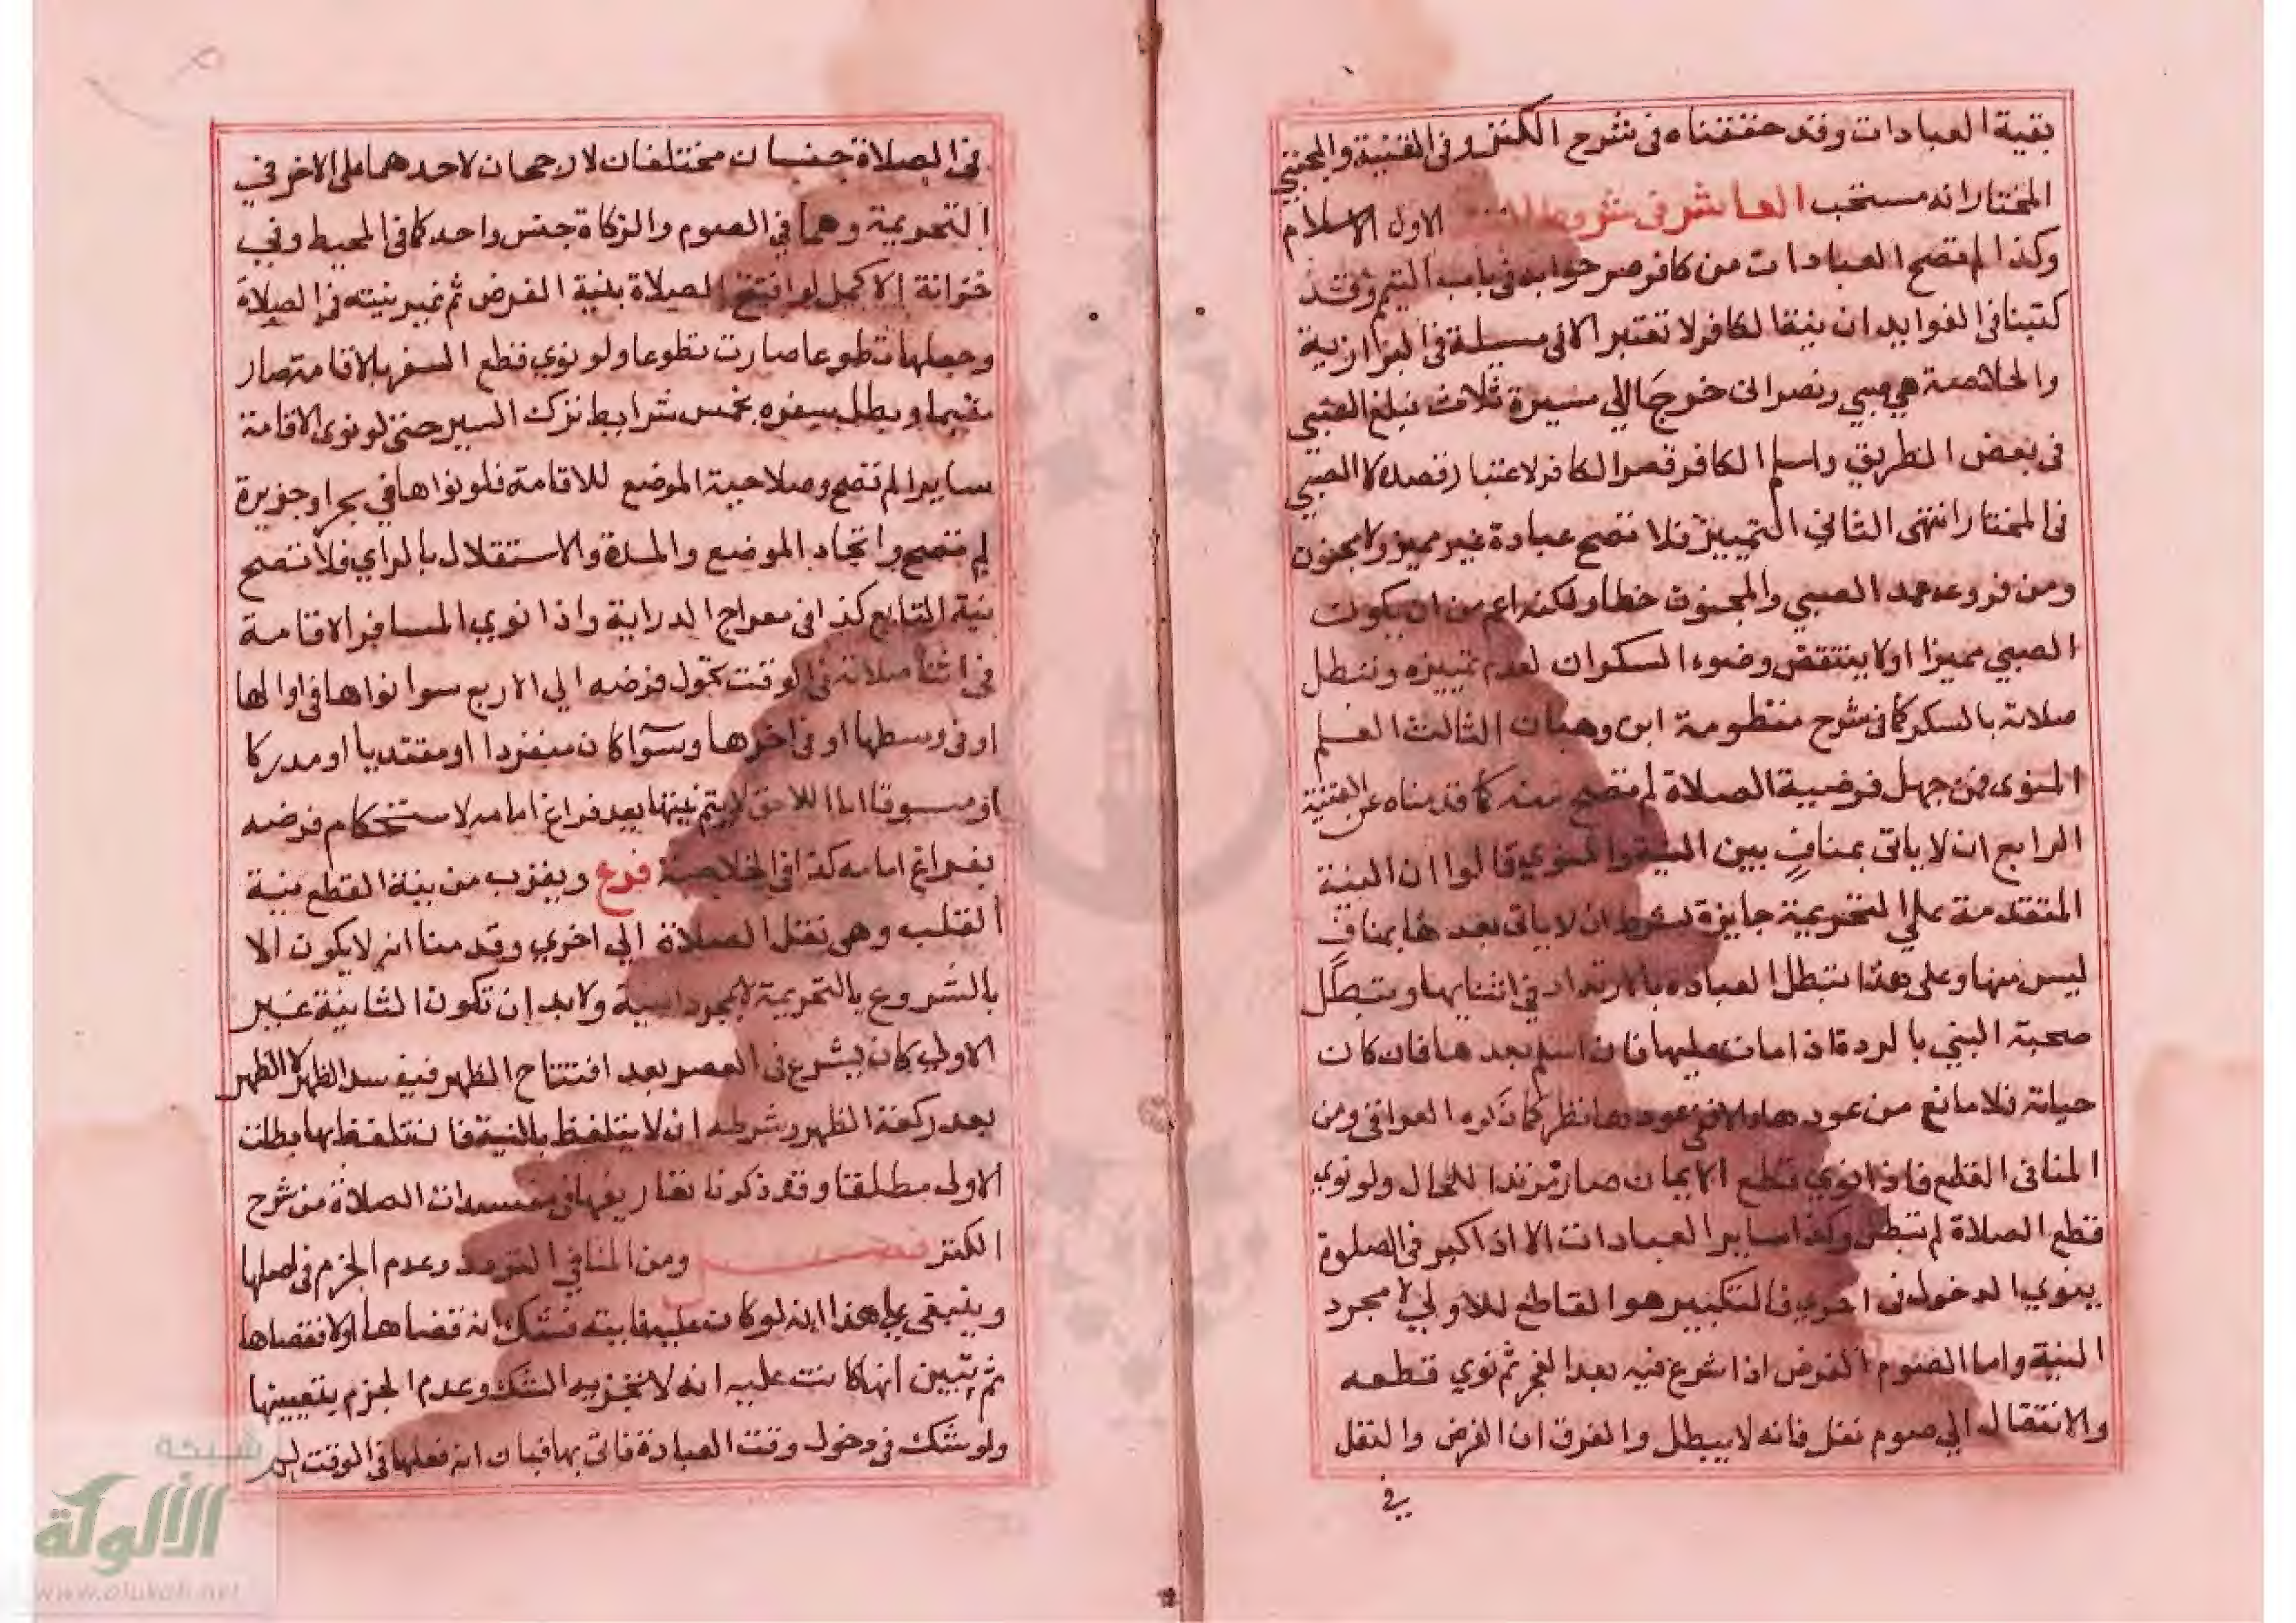 بقية العبادات وقد حققناه فى شرح الكنز وفى القنية والمجتبى
المختار انه مستحب العاشر فى شروط الاول الاسلام
وكذا لم تصح العبادات من كافر صرحوا به فى باب التيمم وقد
كتبنا فى الفوايد ان نية الكافر لا تعتبر الا فى مسيلة فى البزازية
والخلاصة هى صبي ونصرانى خرجا الي مسيرة ثلاث فبلغ الصبي
فى بعض الطريق واسلم الكافر قصر الكافر لاعتبار قصده لا الصبي
فى المختار انتهى الثاني التمييز فلا تصح عبادة غير مميز ولا مجنون
ومن فروعه عمد الصبي والمجنون خطا ولكنه اعم من ان يكون
الصبي مميزا او لا ينتقض وضوء السكران لعدم تمييزه وتبطل
صلاته بالسكر كما فى شرح منظومة ابن وهبان الثالث العلم
المنوى فمن جهل فرضية الصلاة لم تصح منه كما قدمناه عن القنية
الرابع ان لا ياتى بمناف بين النية والمنوي قالوا ان النية
المتقدمة على التحريمة جايزة بشرط ان لا ياتى بعدها بمناف
ليس منها وعلى هذا تبطل العباده بالارتداد في اثنايها وتبطل
صحبة النبي بالردة اذا مات عليها فان اسلم بعدها فان كان
حياته فلا مانع من عودها والا ففى عودها نظر كما ذكره العراقى ومن
المنافى القطع فاذا نوي قطع الايمان صار مرتدا للحال ولو نوي
قطع الصلاة لم تبطل وكذا ساير العبادات الا اذا كبر فى الصلوة
ينوي الدخول فى اخري فالتكبير هو القاطع للاولي لا مجرد
النية واما الصوم الفرض اذا شرع فيه بعد الفجر ثم نوي قطعه
والانتقال الي صوم نفل فانه لا يبطل والفرق ان الفرض والنفل
في
فى الصلاة جنسان مختلفان لا رجحان لاحدهما على الاخر في
التحريمة وهما في الصوم والزكاة جنس واحد كما فى المحيط وفي
خزانة الاكمل لو افتتح الصلاة بنية الفرض ثم غير نيته فى الصلاة
وجعلها تطوعا صارت تطوعا ولو نوي قطع السفر بالاقامة صار
مقيما وبطل سفره بخمس شرايط ترك السير حتى لو نوى الاقامة
سايرا لم تصح وصلاحية الموضع للاقامة فلو نواها في بحر او جزيرة
لم تصح واتحاد الموضع والمدة والاستقلال بالراي فلا تصح
نية التابع كذا فى معراج الدراية واذا نوي المسافر الاقامة
في اثنا صلاته فى الوقت تحول فرضه الي الاربع سوا نواها فى اولها
او فى وسطها او فى اخرها وسوآ كان منفردا او مقتديا او مدركا
او مسبوقا اما اللاحق لا يتم نيتها بعد فراغ امامه لاستحكام فرضه
بفراغ امامه كذا فى الخلاصة فرع ويقرب من نية القطع نية
القلب وهى نقل الصلاة الي اخري وقدمنا انه لا يكون الا
بالشروع بالتحريمة لا بمجرد النية ولا بد ان تكون الثانية غير
الاولي كان يشرع فى العصر بعد افتتاح الظهر فيفسد الظهر لا الظهر
بعد ركعة الظهر وشرطه ان لا يتلفظ بالنية فان تلفظ بها بطلت
الاولى مطلقا وقد ذكرنا تفاريعها فى مفسدات الصلاة من شرح
الكنز فصل ومن المنافي التردد وعدم الجزم فى اصلها
وينبغى على هذا انه لو كان عليه فايتة فشك انه قضاها اولا فقضاها
ثم تبين انها كانت عليه انه لا تجزيه الشك وعدم الجزم بتعيينها
ولو شك فى دخول وقت العبادة فاتى بها فبان انه فعلها فى الوقت لم
شبكة
الألوكة
www.alukah.net